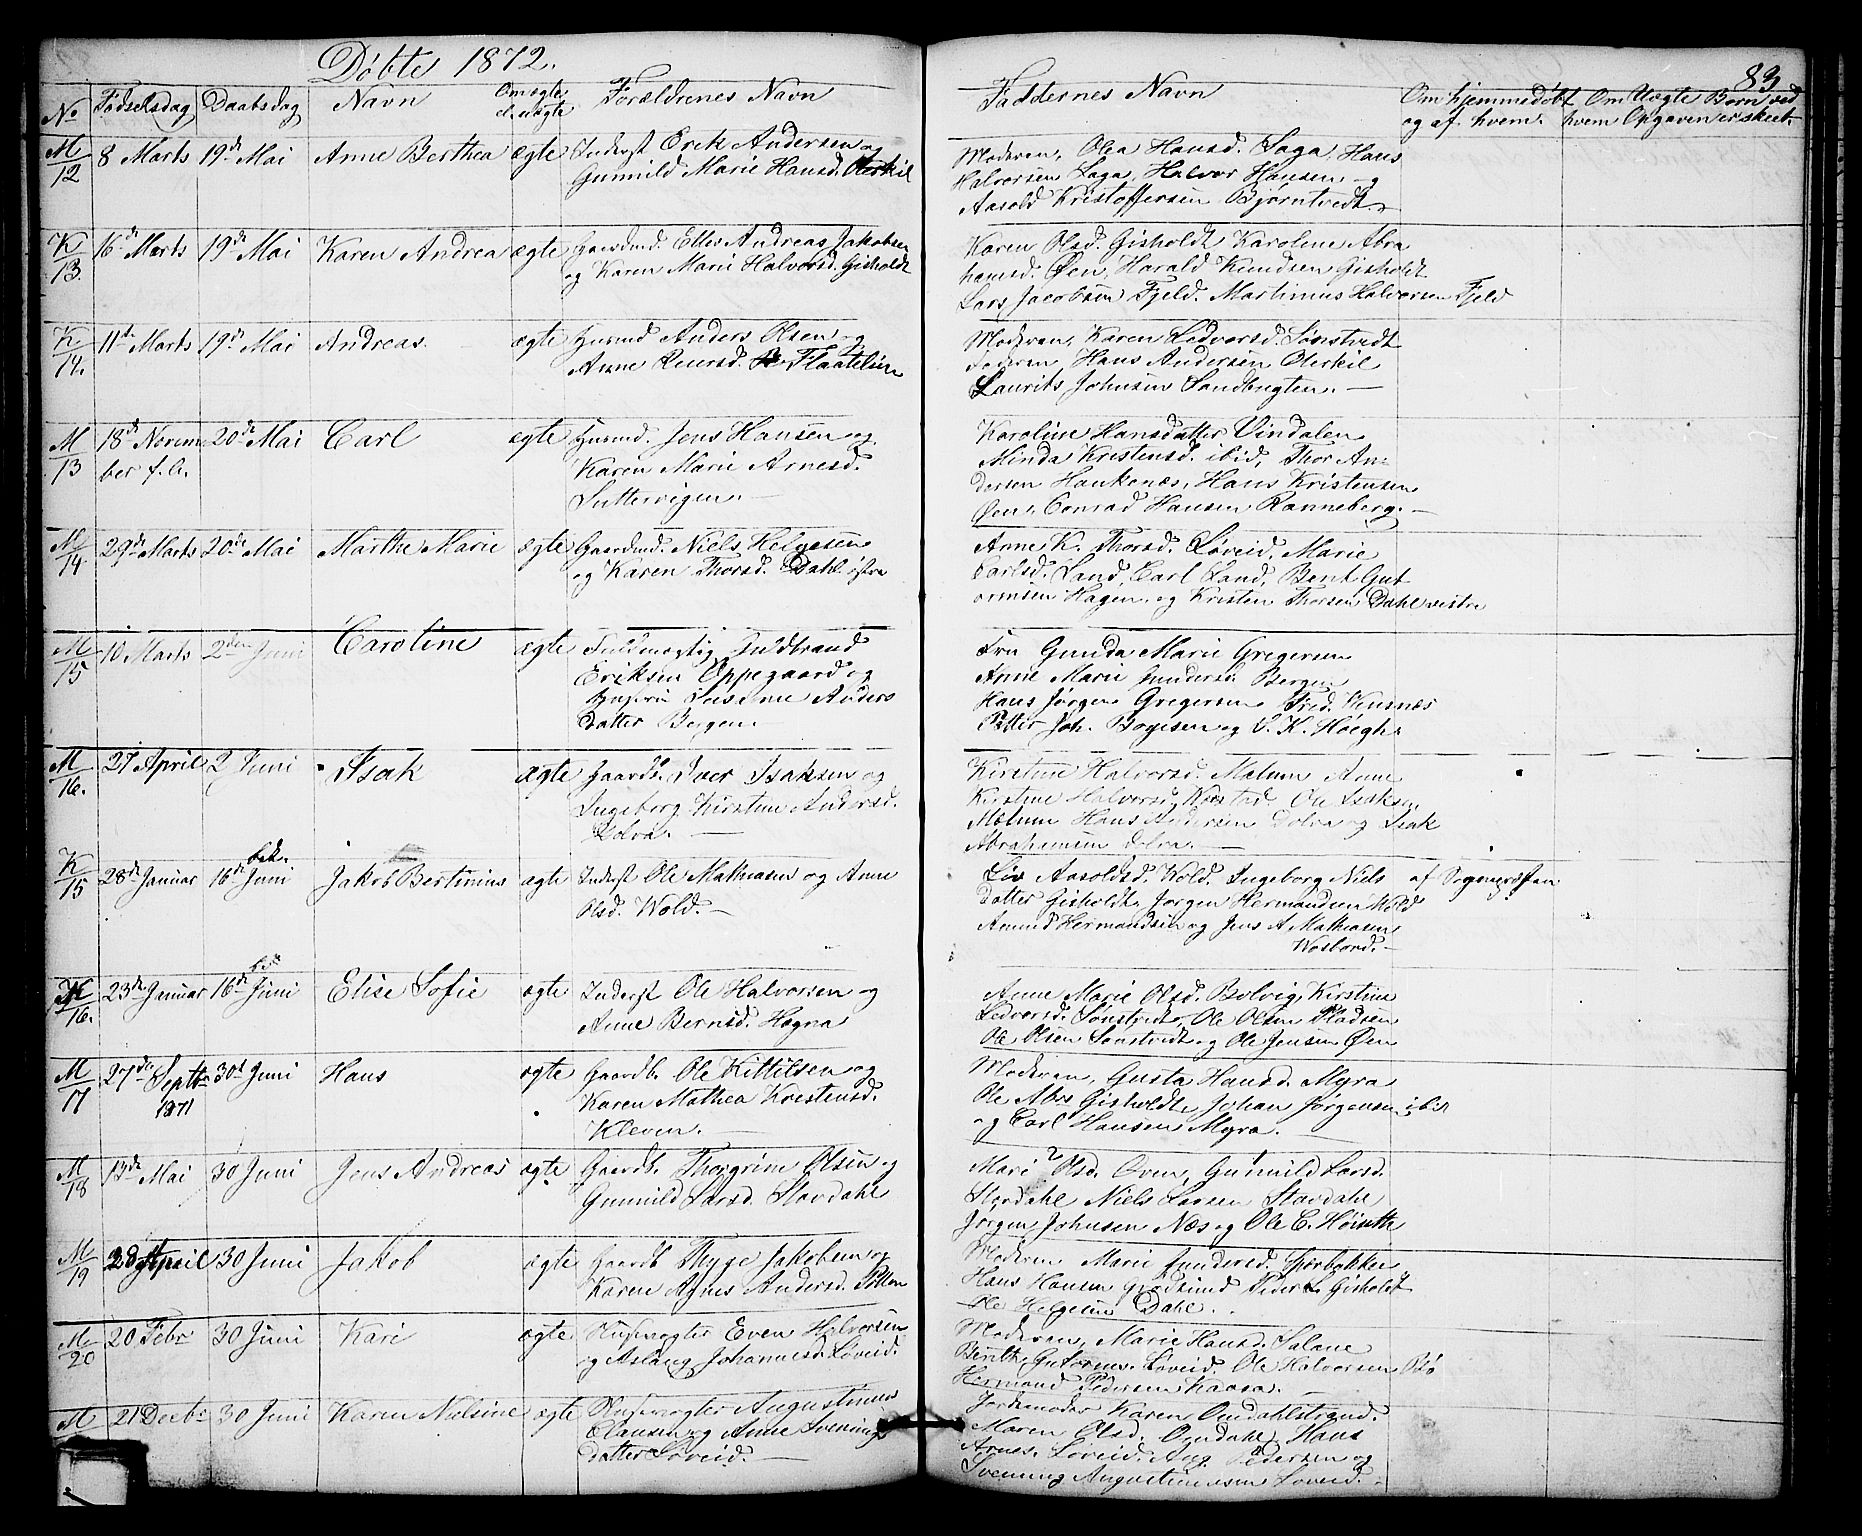 Døbte 1872.
83
No Fødselsdag Daabsdag Navn Om ægte el. uægte Forældrenes Navn Faddernes Navn Om hjemmedøbt og af hvem. Om Uægte Børn ved hvem Opgaven er skeet.
M/12 8 Marts 19de Mai Anne Berthea ægte Inderst Erik Andersen og
Gunnild Marie Hansd. Oterkil
Moderen, Olea Hansd. Saga, Hans
Halvorsen Saga, Halvor Hansen, og
Aasold Kristoffersen Bjørntvedt.
K/13. 16de Marts 19de Mai Karen Andrea ægte Gaardmd. Elles Andreas Jakobsen
og Karen Marie Halvorsd. Gisholdt
Karen Olsd. Gisholdt Karoline Abra
hamsd. Øen, Harald Knudsen Gisholdt
Lars Jacobsen Fjeld. Martinus Halvorsen Fjeld
K/14. 11te Marts 19de Mai Andreas. ægte Husmd Anders Olsen og
Anne Reiersd. Flaatelien
Moderen, Karen Ledvorsd. Sønstvedt
Faderen Hans Andersen Oterkil
Laurits Johnsen Sandbugten. —
M/13 18de Novem 20de Mai Carl ægte Husmd. Jens Hansen og
ber f. A. Karen Marie Arnesd.
Suttervigen. —
Karoline Hansdatter Vindalen
Minda Kristensd. ibid, Thor An-
dersen Haukenæs, Hans Kristensen
Øen, Conrad Hansen Ranneberg. —
M/14 29de Marts 20de Mai Marthe Marie ægte Gaardmd. Niels Helgesen
og Karen Thorsd. Dahl østre
Anne K. Thorsd. Løveid, Marie
Carlsd. Land, Carl Land, Bent Gut
ormsen Hagen, og Kristen Thorsen Dahl vestre
M/15 10 Marts 2den Juni Caroline ægte Fuldmægtig Guldbrand
Eriksen Oppegaard og
Hustru Susanne Anders
datter Borgen. —
Fru Gunda Marie Gregersen
Anne Marie Gundersd. Borgen
Hans Jørgen Gregersen Fred. Vensnæs
Petter Joh. Boyesen og S. K. Høegh.
M/16. 27 April 2 Juni Isak ægte Gaardb. Iver Isaksen og
Ingeborg Kirstine Andersd.
Dolva. —
Kirstine Halvorsd. Mælum Anne
Kirstine Halvorsd. Ole Isaksen
Mælum Hans Andersen Dolva og Isak
Abrahamsen Dolva. —
K/15 28de Januar bek. 16de Juni Jakob Bertinius ægte Inderst Ole Mathiasen og Anne
Olsd. Wold. —
Liv Aasoldsd. Wold. Ingeborg Niels
datter Gisholdt, Jørgen Hermandsen Wold
Amund Hermandsen og Jens A Mathiasen
af Sognepræsten
K/16. 23de Januar bek 16de Juni Elise Sofie ægte Inderst Ole Halvorsen og
Anne Berntsd. Høgna
Anne Marie Olsd. Bolvig, Kirstine
Ledvorsd. Sønstvedt, Ole Olsen Pladsen
Ole Olsen Sønstvedt og Ole Jensen Øen
M/17 27de Septbr 30d Juni Hans ægte Gaardb. Ole Kittilsen og
1871 Karen Mathea Kristensd.
Kleven. —
Moderen, Gusta Hansd. Myra
Ole Abr. Gisholdt, Johan Jørgensen ibid
og Carl Hansen Myra. —
M/18 13de Mai 30 Juni Jens Andreas ægte Gaardb. Thorgrim Olsen og
Gunnild Larsd. Stavdahl
Mari Olsd. Oven, Gunnild Larsd.
Stavdahl Niels Larsen Stavdahl
Jørgen Johnsen Næs og Ole C. Høiseth
M/19 April 30 Juni Jakob ægte Gaardb Thyge Jakobsen og
Karen Agnes Andersd.
Moderen Marie Gundersd. Tjerbakken
Hans Hansen Grødsund Peder L. Gisholdt
Ole Helgesen Dahl.
M/20 20 Febr 30 Juni Kari ægte Slusevogter Even Halvorsen
og Aslaug Johannesd. Løveid.
Moderen, Marie Hansd. Salane
Berith Gutorms. Løveid. Ole Halvorsen Bø
Hermand Pedersen Kaasa. —
M 21 Decbr 30 Juni Karen Nilsine ægte Slusevogter Augustinus
Clausen og Anne Svenings
datter Løveid. —
Jordemoder Karen Omdahlstrand.
Maren Olsd. Omdahl, Hans
Arnes. Løveid. Aug. Pedersen og
Svennung Augustinussen Løveid. —